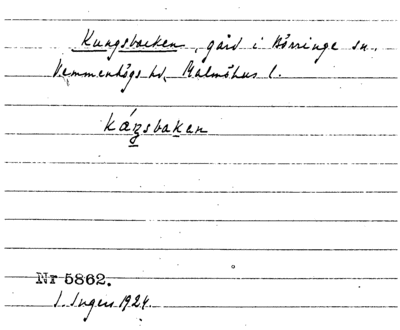 Kungsbacken, gård i Börringe sn.,
Vemmenhögs hd, Malmöhus l.
káŋsbakan
Nr 5862.
I. Ingers 1924.